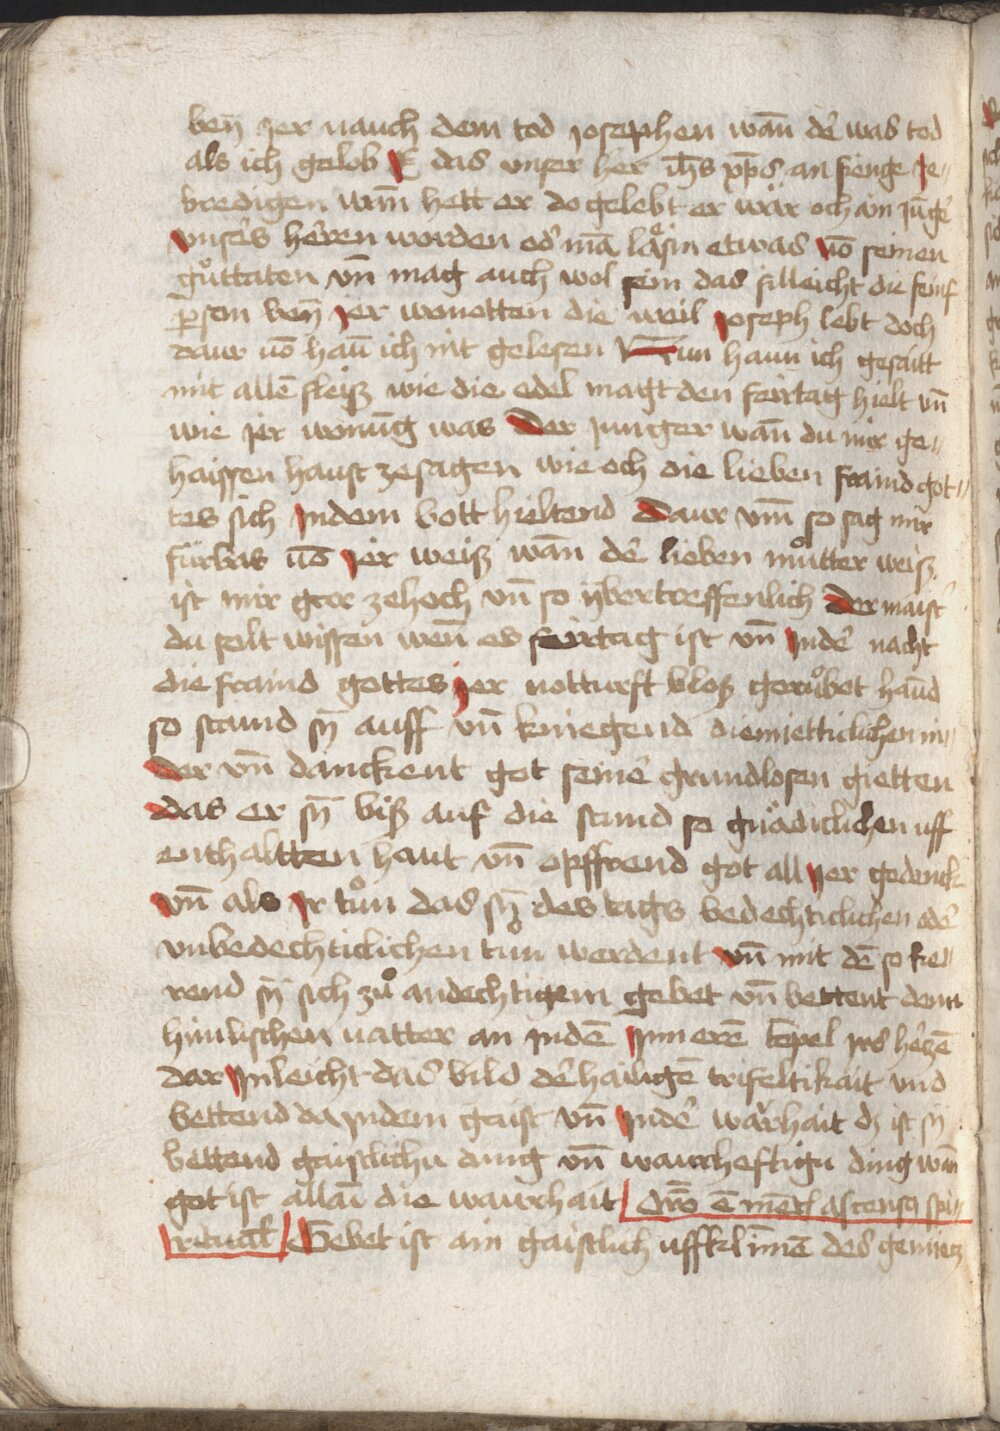 ben̄ ꝛer nauch dem tod Josephen wan̄ dē was tod
als ich gelob E das vnser her ih̄s xp̄s an fenge ze-
bredigen wan̄ hett er do gelebt er wär och ain Jūgē
vnsers hēren worden odˀ mā läsin etwas vō seinen
gůttaten vn̄ mag auch wol sein das filleicht die fünf
p̄son ben̄ Jer wonotten die weil Joseph lebt doch
daur vō han̄ ich nit gelesen Nun haun ich gesaitt
mit allē fleiß wie die edel magt den fairtag hielt vn̄
wie Jer wonūg was Der Junger wan̄ du mir ge-
haissen haust zesagen wie och die lieben fraind got-
tes sich Jndem bott hieltend Daur vm̄ so sag mir
fürbas vō Jer weiß wan̄ dē lieben můtter weiß
ist mir gar zehoch vn̄ so ÿbertreffenlich Der maistˀ
du solt wissen wen̄ es fairtag ist vn̄ Jndē nacht
die fraind gottes Jer notturft bloß gerůbet haūd
so stand sÿ auff vn̄ kniegend diemietticlichen ni-
der vn̄ danckent got seinē grundlosen gietten
das er sÿ biß auf die stund so gnädiclichen uff
enthaltten haut vn̄ opffrend got all Jer gedenck
vn̄ als Jr tůn das sÿ des tags bedechticlichen odē
vnbedechticlichen tůn werdent vn̄ mit dē so ke-
rend sÿ sich zů andechtigem gebet vn̄ bettent den
himlischen vatter an Jndē Jnnerē tēpel Jrs hērzē
dar Jnleicht das bild dē hailigē trifeltikait vnd
bettend da Jndem gaist vn̄ Jndē warhait dz ist sÿ
bettend gaistlichu ding vn̄ waurheftigu ding wan̄
got ist allain die waurhait Orō ē mētꝭ ascensꝯ spi-
ritualꝭ Gebet ist ain gaistlich uffklimē des gemietz